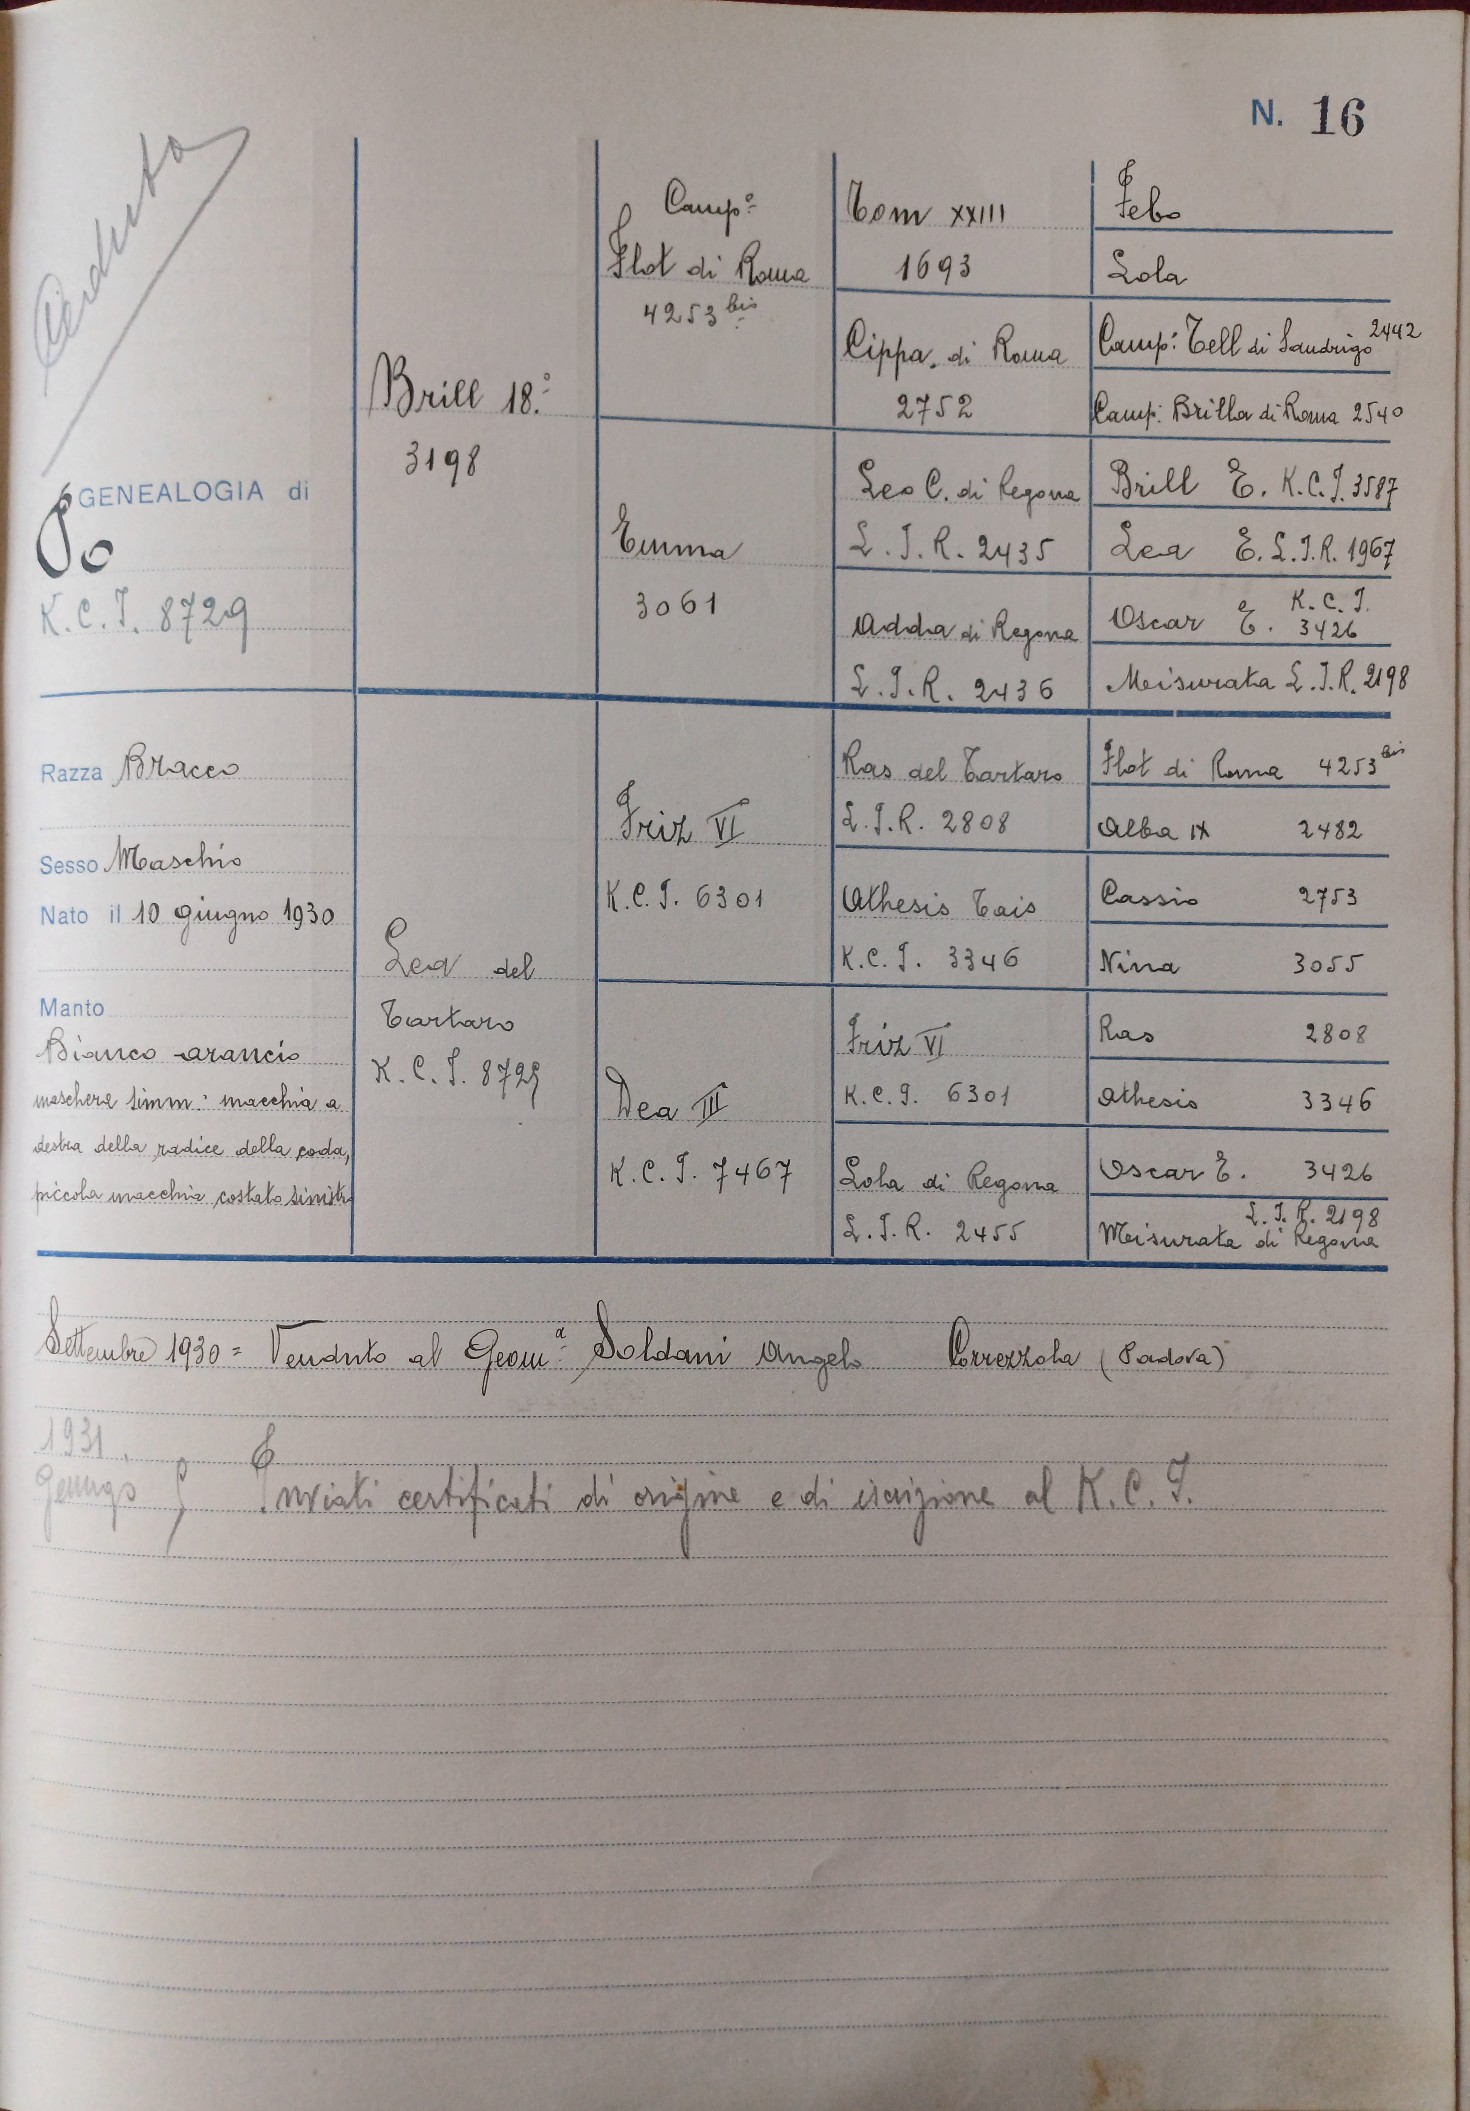 N. 16
Ceduto
GENEALOGIA di
Po
K.C.I. 8729
Razza Bracco
Sesso Maschio
Nato il 10 giugno 1930
Manto
Bianco arancio
maschera simm: macchia a
destra della radice della coda,
piccola macchia costato sinistr
Brill 18.°
3198
Lea del
Tartaro
K.C.I. 8725
Camp.e
Flot di Roma
4253 bis
Emma
3061
Friz VI
K.C.I. 6301
Dea III
K.C.I. 7467
Tom XXIII
1693
Cippa di Roma
2752
Leo C. di Regona
L.I.R. 2435
Adda di Regona
L.I.R. 2436
Ras del Tartaro
L.I.R. 2808
Athesis Tais
K.C.I. 3346
Friz VI
K.C.I. 6301
Lola di Regona
L.I.R. 2455
Febo
Lola
Camp: Tell di Sandrigo 2442
Camp: Brilla di Roma 2540
Brill E. K.C.I. 3587
Lea E. L.I.R. 1967
Oscar E. K.C.I. 3426
Meisurata L.I.R. 2198
Flot di Roma 4253 bis
Alba IX 2482
Cassio 2753
Nina 3055
Ras 2808
Athesis 3346
Oscar E. 3426
L.I.R. 2198
Meisurata di Regona
Settembre 1930 = Venduto al Geom.a Soldani Angelo Correzzola (Padova)
1931.
Inviati certificati di origine e di iscrizione al K.C.I.